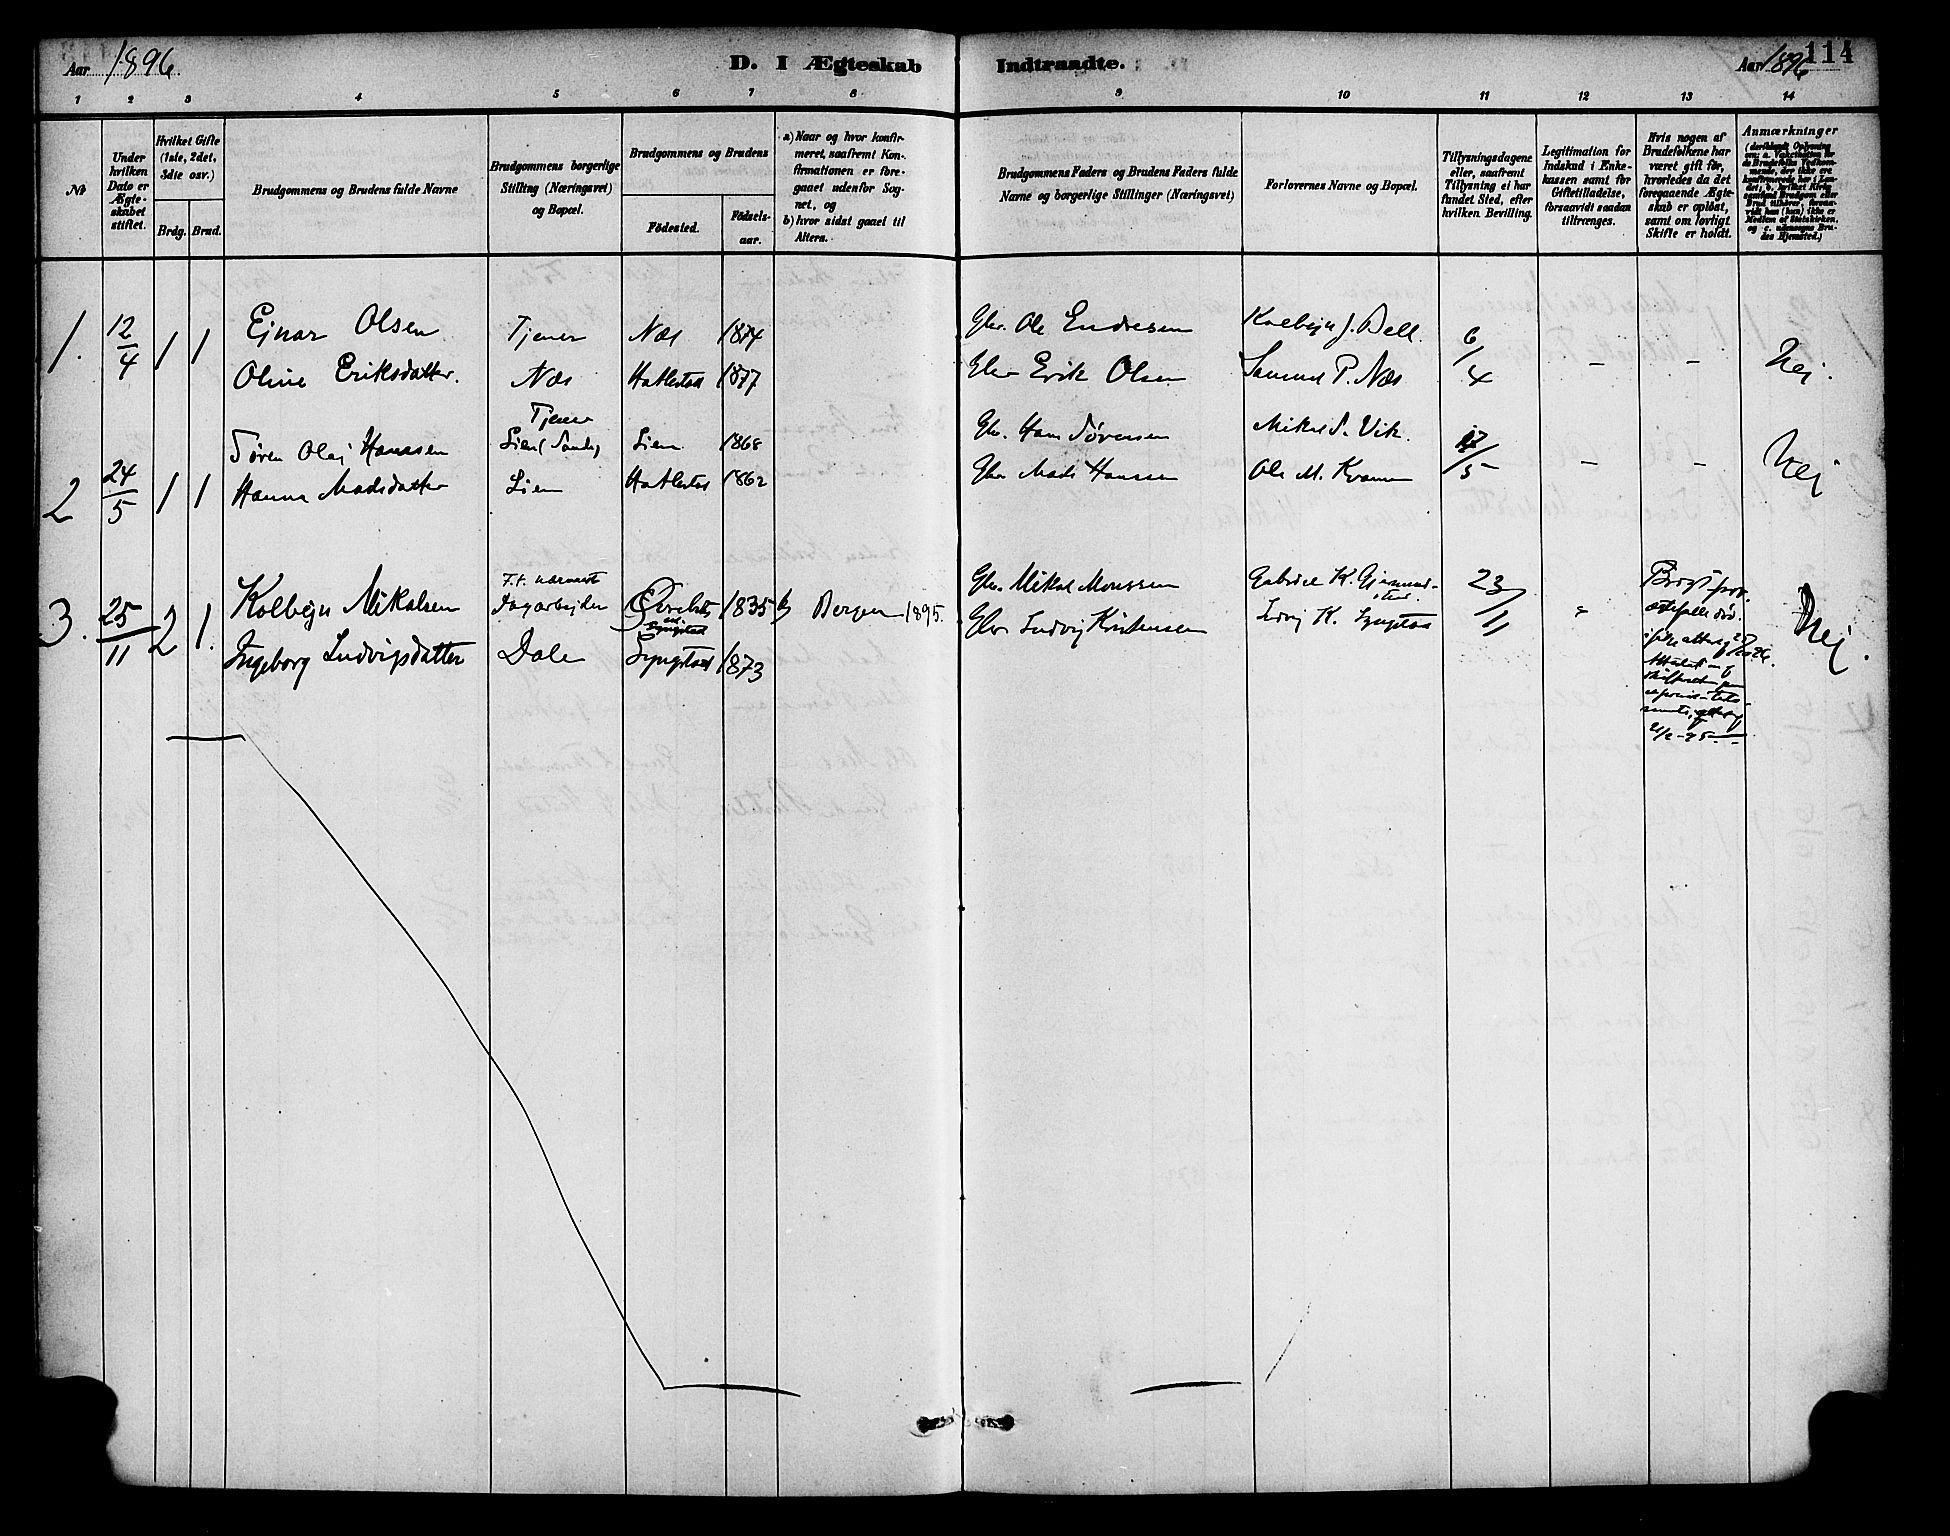 Aar 1896
D. I Ægteskab Indtraadte.
Aar 1896
114
1 2 3 4 5 6 7 8 9 10 11 12 13 14
No
Under hvilken Dato er Ægteskabet stiftet.
Hvilket Gifte (1ste, 2det, 3die osv.)
Brdg. Brud.
Brudgommens og Brudens fulde Navne
Brudgommens borgerlige Stilling (Næringsvei) og Bopæl.
Brudgommens og Brudens
Fødested.
Fødsels-aar.
a) Naar og hvor konfirmeret, saafremt Konfirmationen er foregaaet udenfor Sognet, og
b) hvor sidst gaaet til Alters.
Brudgommens Faders og Brudens Faders fulde Navne og borgerlige Stillinger (Næringsvei)
Forlovernes Navne og Bopæl.
Tillysningsdagene eller, saafremt Tillysning ei har fundet Sted, efter hvilken Bevilling.
Legitimation for Indskud i Enkekassen samt for Giftetilladelse, forsaavidt saadan tiltrænges.
Hvis nogen af Brudefolkene har været gift før, hvorledes da det foregaaende Ægteskab er opløst, samt om lovligt Skifte er holdt.
Anmærkninger
1. 12/4 1 1 Ejnar Olsen Tjener Næs 1874 Gbr. Ole Endresen Kolbejn J. Dell. 6/4 - - Nej.
Oline Eriksdatter. Næs Hatlestad 1877 Gbr Erik Olsen Samuel P. Næs
2 24/5 1 1 Søren Olaj Hanssen Tjener Lien 1868 Gbr. Hans Sørensen Mikal S. Vik. 17/5 - - Nej
Hanna Madsdatter Lien Hatlestad 1862 Gbr Mads Hanssen Ole M. Kvamm
3. 25/11 2 1. Kolbejn Mikalsen Dagarbejder 1835 b) Bergen 1895. Gbr. Mikal Monssen Gabriel K. 23/11 Nej.
Ingeborg Ludvigsdatter Dale Syngstad 1873 Gbr Ludvig Kristensen Ludvig K. Syngstad